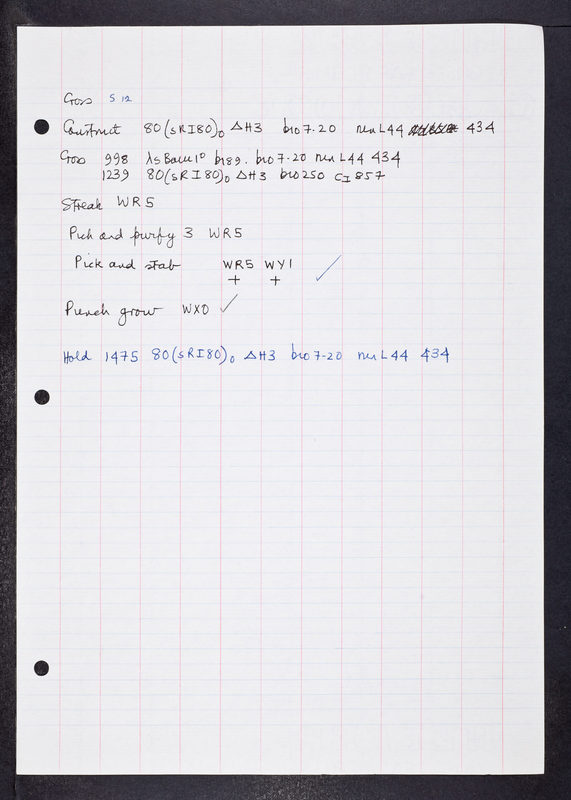 Cross S 12
Construct 80(sRI80)₀ ΔH3 bio7-20 nin L44 434
Cross 998 λs Bam1° b189. bio7-20 nin L44 434
1239 80(sRI80)₀ ΔH3 bio250 cI857
Streak WR5
Pick and purify 3 WR5
Pick and stab WR5 WY1 ✓
+ +
Plunge grow WX0 ✓
Hold 1475 80(sRI80)₀ ΔH3 bio7-20 nin L44 434